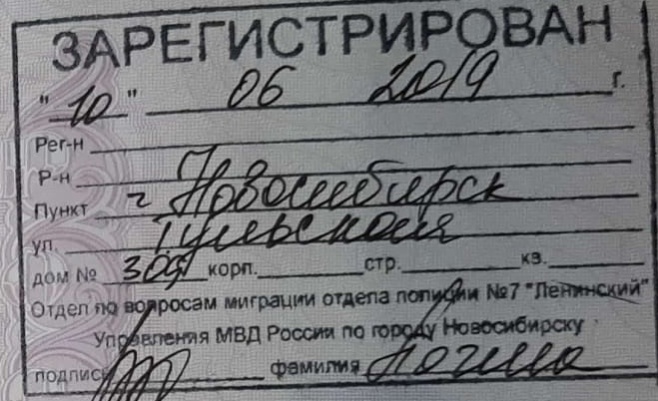 ЗАРЕГИСТРИРОВАН
"10" 06 2019 г.
Рег-н
Р-н
Пункт г Новосибирск
ул. Тульская
дом № корп. стр. кв.
Отдел по вопросам миграции отдела полиции №7 "Ленинский"
Управления МВД России по городу Новосибирску
подпись фамилия